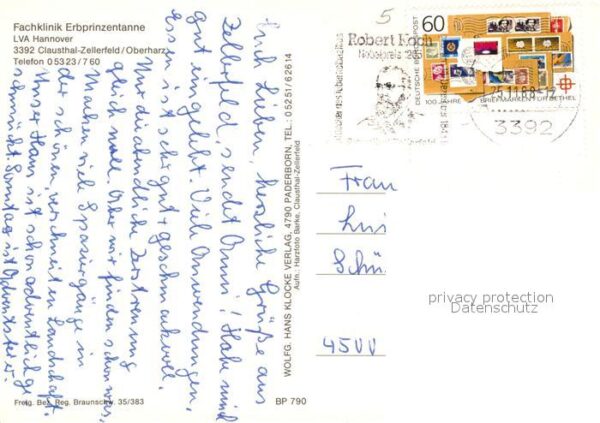 Fachklinik Erbprinzentanne
LVA Hannover
3392 Clausthal-Zellerfeld/Oberharz
Telefon 0 53 23/7 60
Euch Lieben, herzliche Grüße aus
Zellerfeld, sendet Omi! Habe mich
gut eingelebt. Viele Anwendungen,
Essen ist sehr gut + geschmackvoll.
Nur die abendliche Zerstreuung
gleich null. Aber wir finden schon was,
Machen viele Spaziergänge in
der schönen, verschneiten Landschaft.
Unser Haus ist schon adventlich ge-
schmückt. Sonntag ist Adventsfeier.
Freig. Bez. Reg. Braunschw. 35/383
BP 790
WOLFG. HANS KLOCKE VERLAG, 4790 PADERBORN, TEL.: 0 52 51/6 26 14
Aufn.: Harzfoto Barke, Clausthal-Zellerfeld
5
Robert Koch
Nobelpreis
60
DEUTSCHE BUNDESPOST
100 JAHRE
BRIEFMARKEN FÜR BETHEL
25.11.88-12
3392
Frau
Schü
4500
privacy protection
Datenschutz